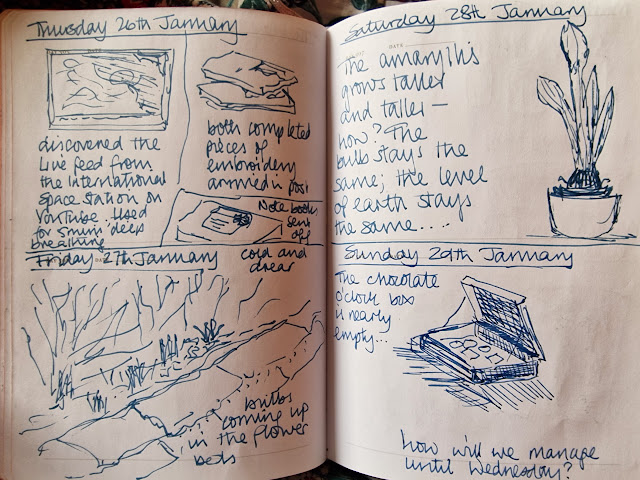 Thursday 26th January
discovered the
Live feed from
the International
Space station on
YouTube. Used
for 5 mins deep
breathing
both completed
pieces of
embroidery
arrived in post
Note books
sent
off
Friday 27th January
cold and
drear
bulbs
coming up
in the flower
beds
Saturday 28th January
The amaryllis
grows taller
and taller –
how? The
bulb stays the
same; the level
of earth stays
the same....
Sunday 29th January
The chocolate
o'clock box
is nearly
empty...
how will we manage
until Wednesday?